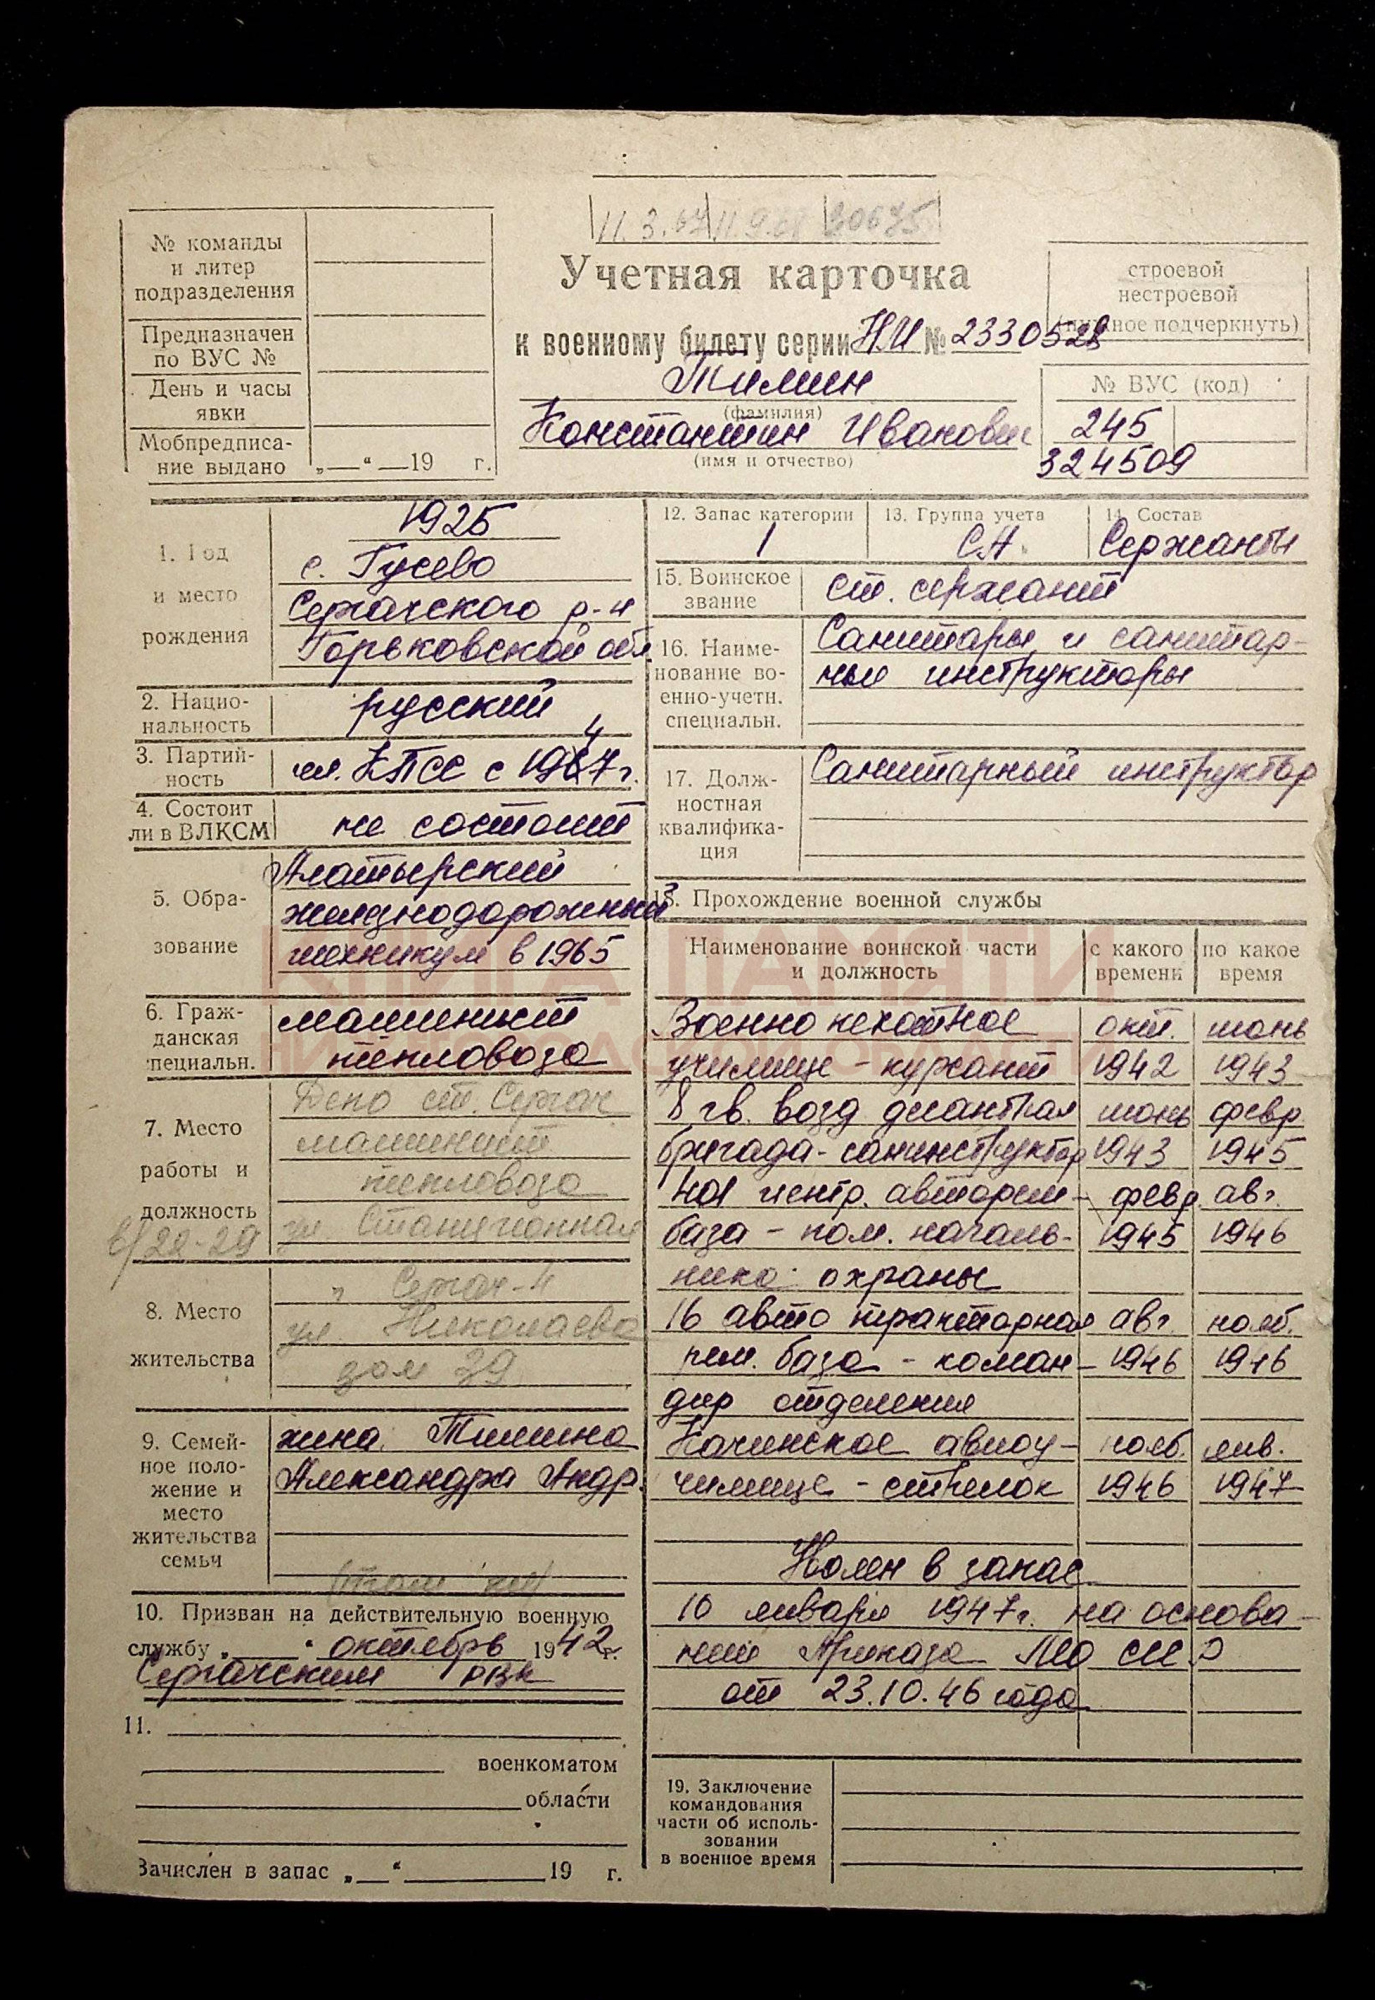 11.3.67 11.9.68 30675
№ команды
и литер
подразделения
Предназначен
по ВУС №
День и часы
явки
Мобпредписа-
ние выдано „—“ —19 г.
Учетная карточка
к военному билету серии НИ № 2330528
Тимин
(фамилия)
Константин Иванович
(имя и отчество)
строевой
нестроевой
(нужное подчеркнуть)
№ ВУС (код)
245
324509
1. Год
и место
рождения
1925
с. Гусево
Сергачского р-н
Горьковской обл.
2. Нацио-
нальность
русский
3. Партий-
ность
чл. КПСС с 1947 г.
4. Состоит
ли в ВЛКСМ
не состоит
5. Обра-
зование
Алатырский
железнодорожный
техникум в 1965
6. Граж-
данская
специальн.
машинист
тепловоза
7. Место
работы и
должность
в/22-29
Депо ст. Сергач
машинист
тепловоза
ул Станционная
8. Место
жительства
г Сергач-4
ул. Николаева
дом 39
9. Семей-
ное поло-
жение и
место
жительства
семьи
жена. Тимина
Александра Андр.
(там же)
10. Призван на действительную военную
службу „ “ октябрь 1942 г.
Сергачским РВК
11.
военкоматом
области
Зачислен в запас „—“ 19 г.
12. Запас категории
1
13. Группа учета
СА.
14. Состав
Сержанты
15. Воинское
звание
ст. сержант
16. Наиме-
нование во-
енно-учетн.
специальн.
Санитары и санитар-
ные инструкторы
17. Долж-
ностная
квалифика-
ция
Санитарный инструктор
18. Прохождение военной службы
Наименование воинской части
и должность
с какого
времени
по какое
время
Военно пехотное окт. июнь
училище - курсант 1942 1943
8 гв. возд десантная июнь февр.
бригада - санинструктор 1943 1945
401 центр. авторем- февр. авг.
база - пом. началь- 1945 1946
ника охраны
16 авто тракторная авг. нояб.
рем. база - коман- 1946 1946
дир отделения
Качинское авиоу- нояб. янв.
чилище - стрелок 1946 1947
Уволен в запас
10 января 1947 г. на основа-
нии Приказа МО СССР
от 23.10.46 года
19. Заключение
командования
части об исполь-
зовании
в военное время
КНИГА ПАМЯТИ
НИЖЕГОРОДСКОЙ ОБЛАСТИ